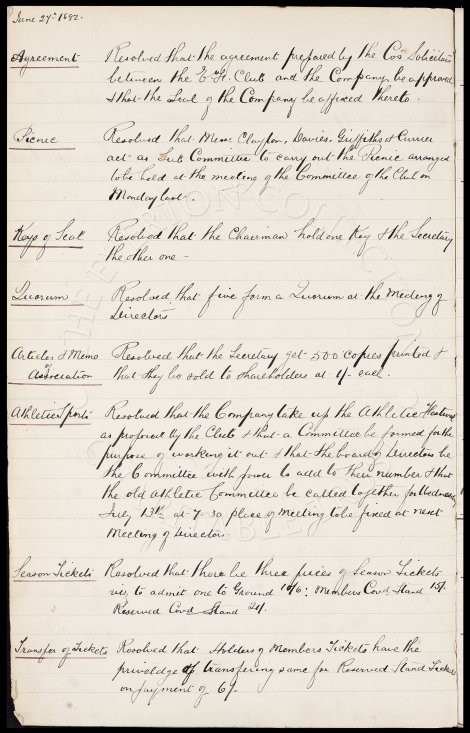 June 27th 1892.
Agreement Resolved that the agreement prepared by the Co's Solicitors
between the E. F. Club and the Company be approved
& that the Seal of the Company be affixed thereto.
Picnic Resolved that Messrs Clayton, Davies, Griffiths & Currier
act as Sub Committee to carry out the Picnic arranged
to be held at the meeting of the Committee of the Club on
Monday last.
Keys of Seal Resolved that the Chairman hold one Key & the Secretary
the other one -
Quorum Resolved that five form a Quorum at the Meeting of
Directors
Articles & Memo Resolved that the Secretary get 500 copies printed &
Association that they be sold to shareholders at 1/- each.
Athletic Sports Resolved that the Company take up the Athletic Festival
as proposed by the Club & that a Committee be formed for the
purpose of working it out & that the board of Directors be
the Committee with power to add to their number & that
the old Athletic Committee be called together for Wednesday
July 13th at 7-30 place of meeting to be fixed at next
Meeting of Directors.
Season Tickets Resolved that there be three prices of Season Tickets
viz to admit one to Ground 10/6: Members Covd Stand 15/-
Reserved Covd Stand 21/-
Transfer of Tickets Resolved that Holders of Members Tickets have the
priveledge of transferring same for Reserved Stand Tickets
on payment of 6/-